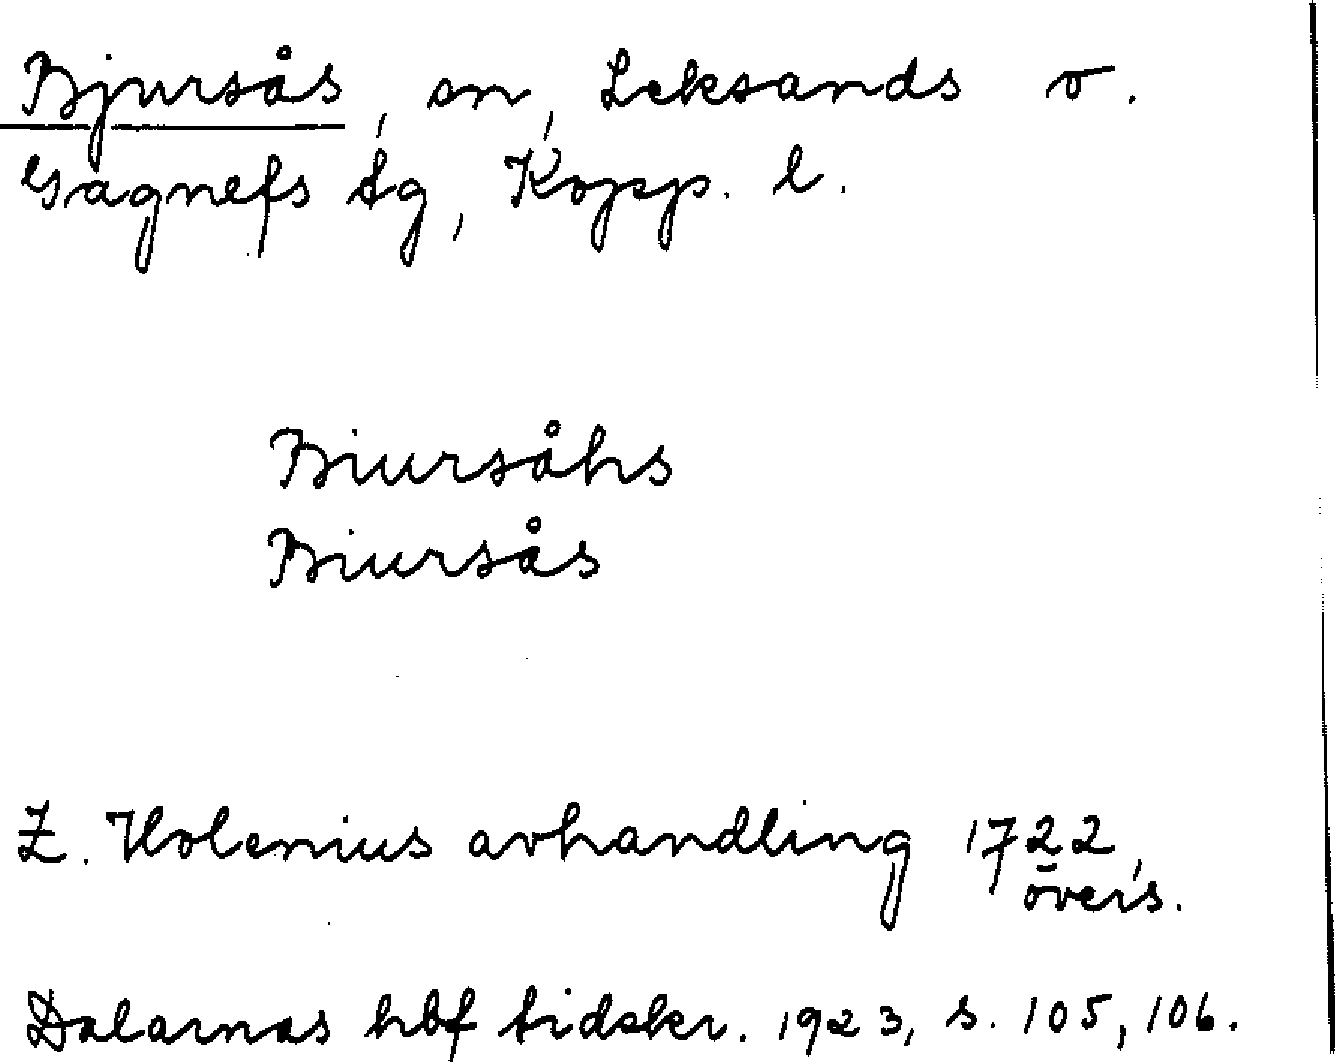 Bjursås, sn, Leksands o.
Gagnefs tg, Kopp. l.
Biursåhs
Biursås
Z. Holenius avhandling 1722,
övers.
Dalarnas hbf tidskr. 1923, s. 105, 106.